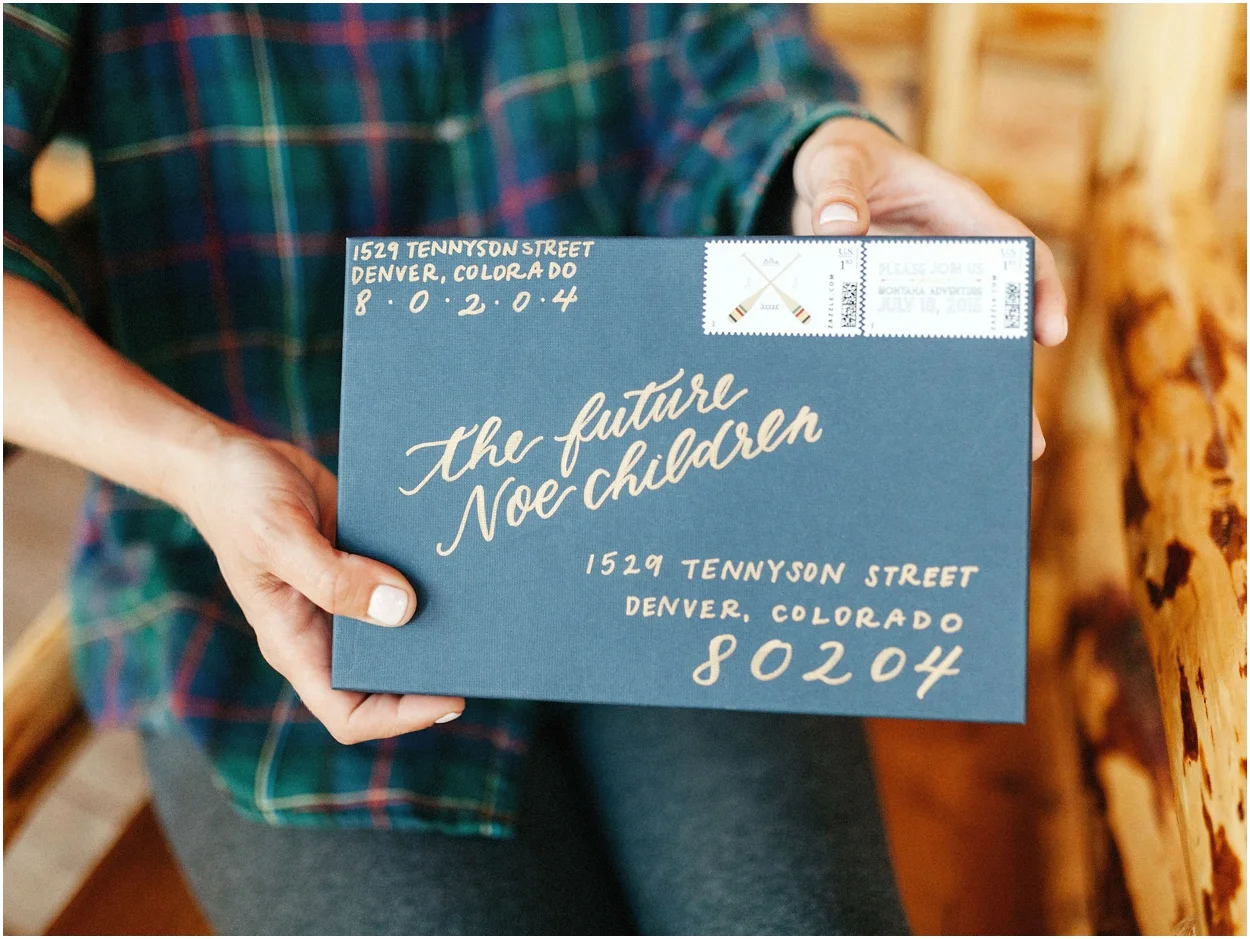 1529 TENNYSON STREET
DENVER, COLORADO
8·0·2·0·4
US
1
ZAZZLE.COM
PLEASE JOIN US
MONTANA ADVENTURE
US
1
ZAZZLE.COM
the future
Noe children
1529 TENNYSON STREET
DENVER, COLORADO
80204